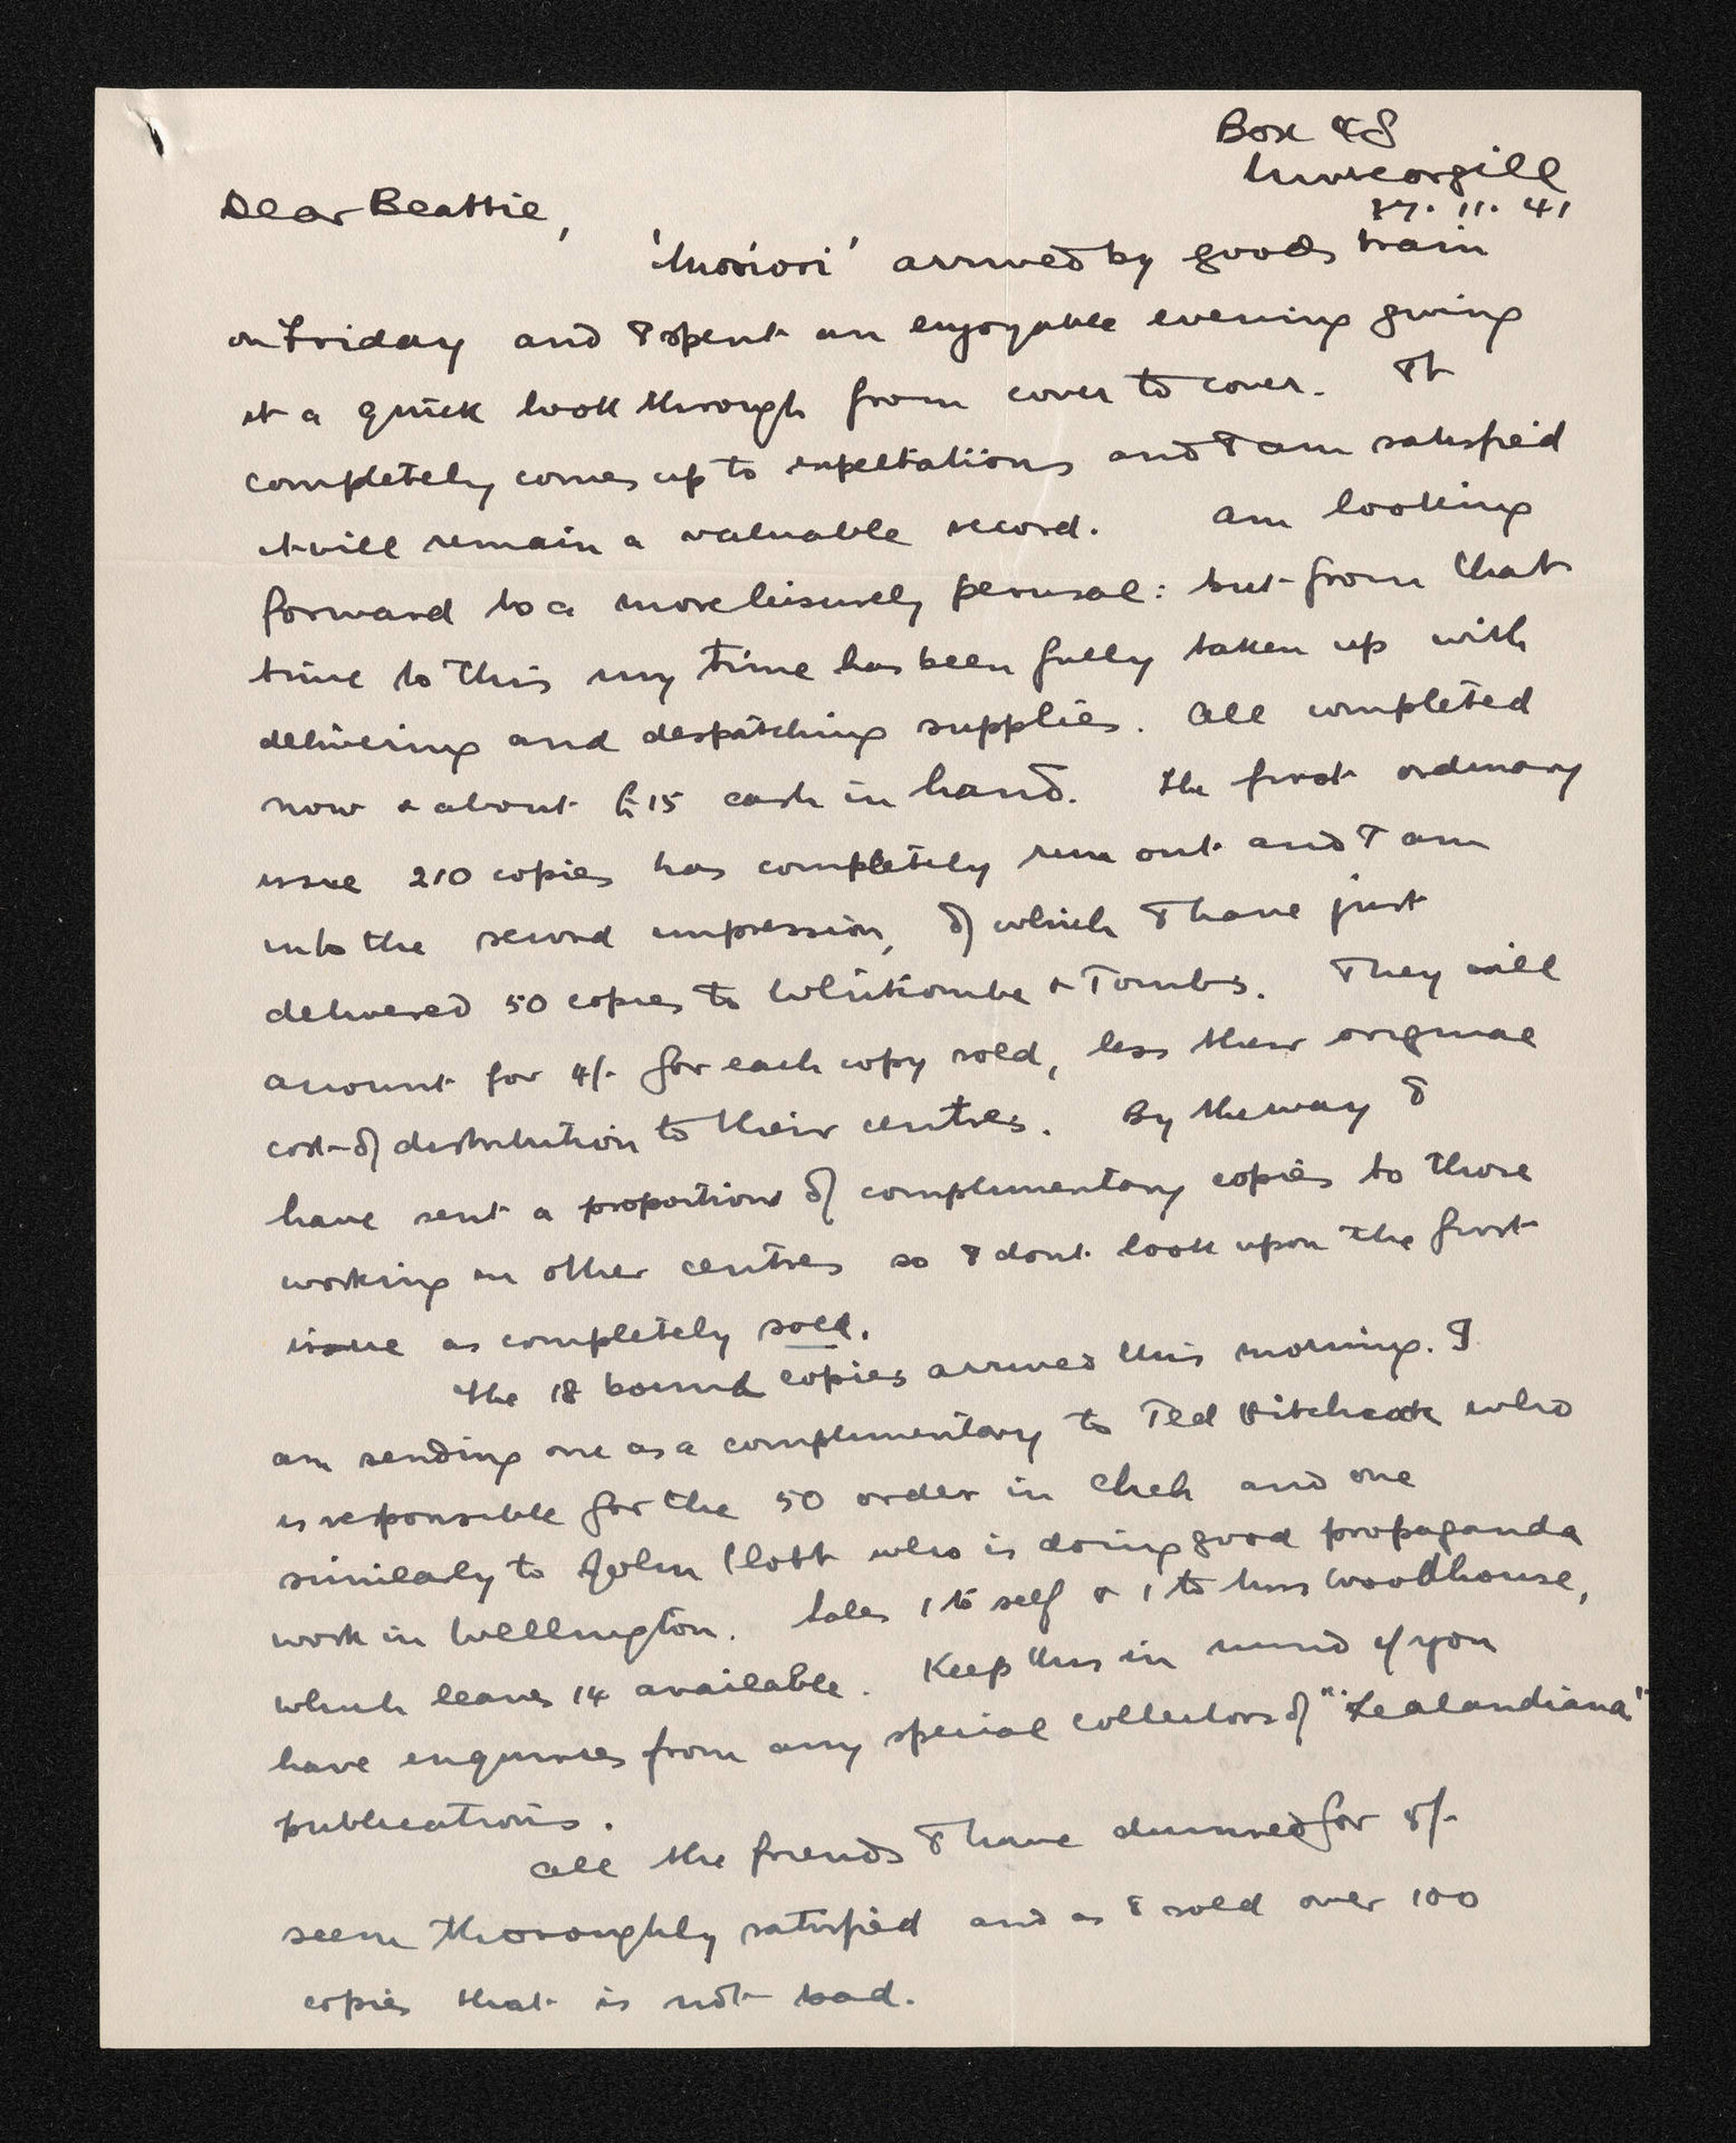 Box 48
Invercargill
27. 11. 41
Dear Beattie,
'Moriori' arrived by goods train
on Friday and I spent an enjoyable evening giving
it a quick look through from cover to cover. It
completely comes up to expectations and I am satisfied
it will remain a valuable record. Am looking
forward to a more leisurely perusal: but from that
time to this my time has been fully taken up with
delivering and despatching supplies. All completed
now & about £15 cash in hand. The first ordinary
issue 210 copies has completely run out and I am
into the second impression, of which I have just
delivered 50 copies to Whitcombe & Tombs. They will
account for 4/- for each copy sold, less their original
cost of distribution to their centres. By the way I
have sent a proportion of complimentary copies to those
working in other centres so I dont look upon the first
issue as completely sold.
The 18 bound copies arrived this morning. I
am sending one as a complimentary to Ted Hitchcock who
is responsible for the 50 order in Chch and one
similarly to John Plott who is doing good propaganda
work in Wellington. Sales 1 to self & 1 to Mrs Woodhouse,
which leaves 14 available. Keep this in mind if you
have enquiries from any special collectors of "Zealandiana"
publications.
All the friends I have dunned for 5/-
seem thoroughly satisfied and as I sold over 100
copies that is not bad.